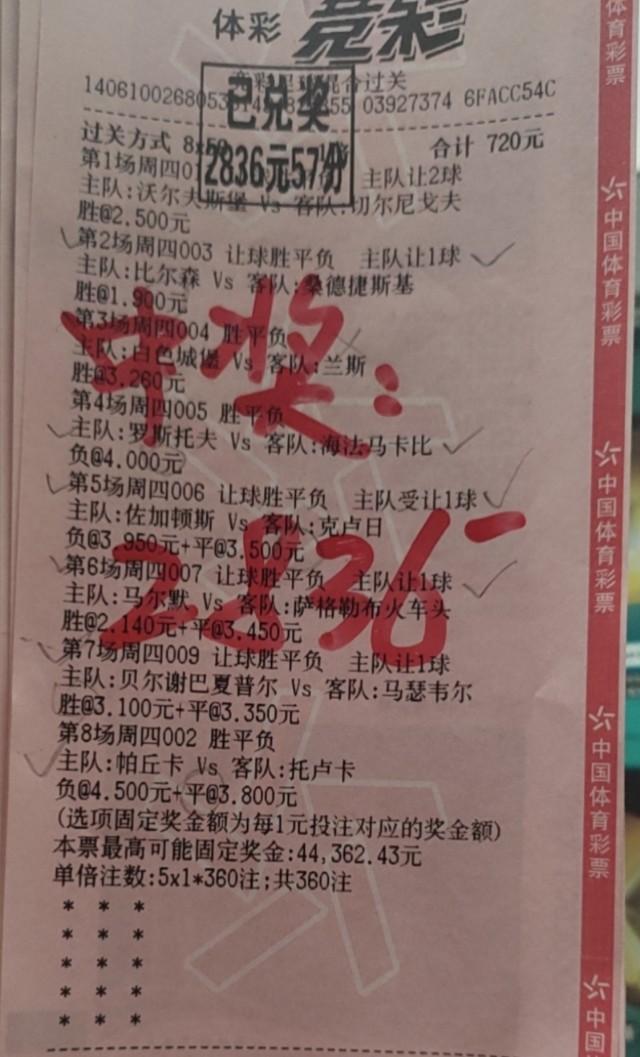 体彩 竞彩
竞彩足球混合过关
03927374 6FACC54C
已兑奖
2836元57分
过关方式 合计 720元
第1场周四 主队让2球
主队:沃尔夫斯堡 Vs 客队:切尔尼戈夫
胜@2.500元
第2场周四003 让球胜平负 主队让1球
主队:比尔森 Vs 客队:桑德捷斯基
胜@1.900元
第3场周四004 胜平负
主队:白色城堡 Vs 客队:兰斯
胜@3.260元
第4场周四005 胜平负
主队:罗斯托夫 Vs 客队:海法马卡比
负@4.000元
第5场周四006 让球胜平负 主队受让1球
主队:佐加顿斯 Vs 客队:克卢日
负@3.950元+平@3.500元
第6场周四007 让球胜平负 主队让1球
主队:马尔默 Vs 客队:萨格勒布火车头
胜@2.140元+平@3.450元
第7场周四009 让球胜平负 主队让1球
主队:贝尔谢巴夏普尔 Vs 客队:马瑟韦尔
胜@3.100元+平@3.350元
第8场周四002 胜平负
主队:帕丘卡 Vs 客队:托卢卡
负@4.500元+平@3.800元
(选项固定奖金额为每1元投注对应的奖金额)
本票最高可能固定奖金:44,362.43元
单倍注数:5x1*360注;共360注
* * *
* * *
* * *
* * *
* * *
中奖:
2836-
体育彩票
中国体育彩票
中国体育彩票
中国体育彩票
中国